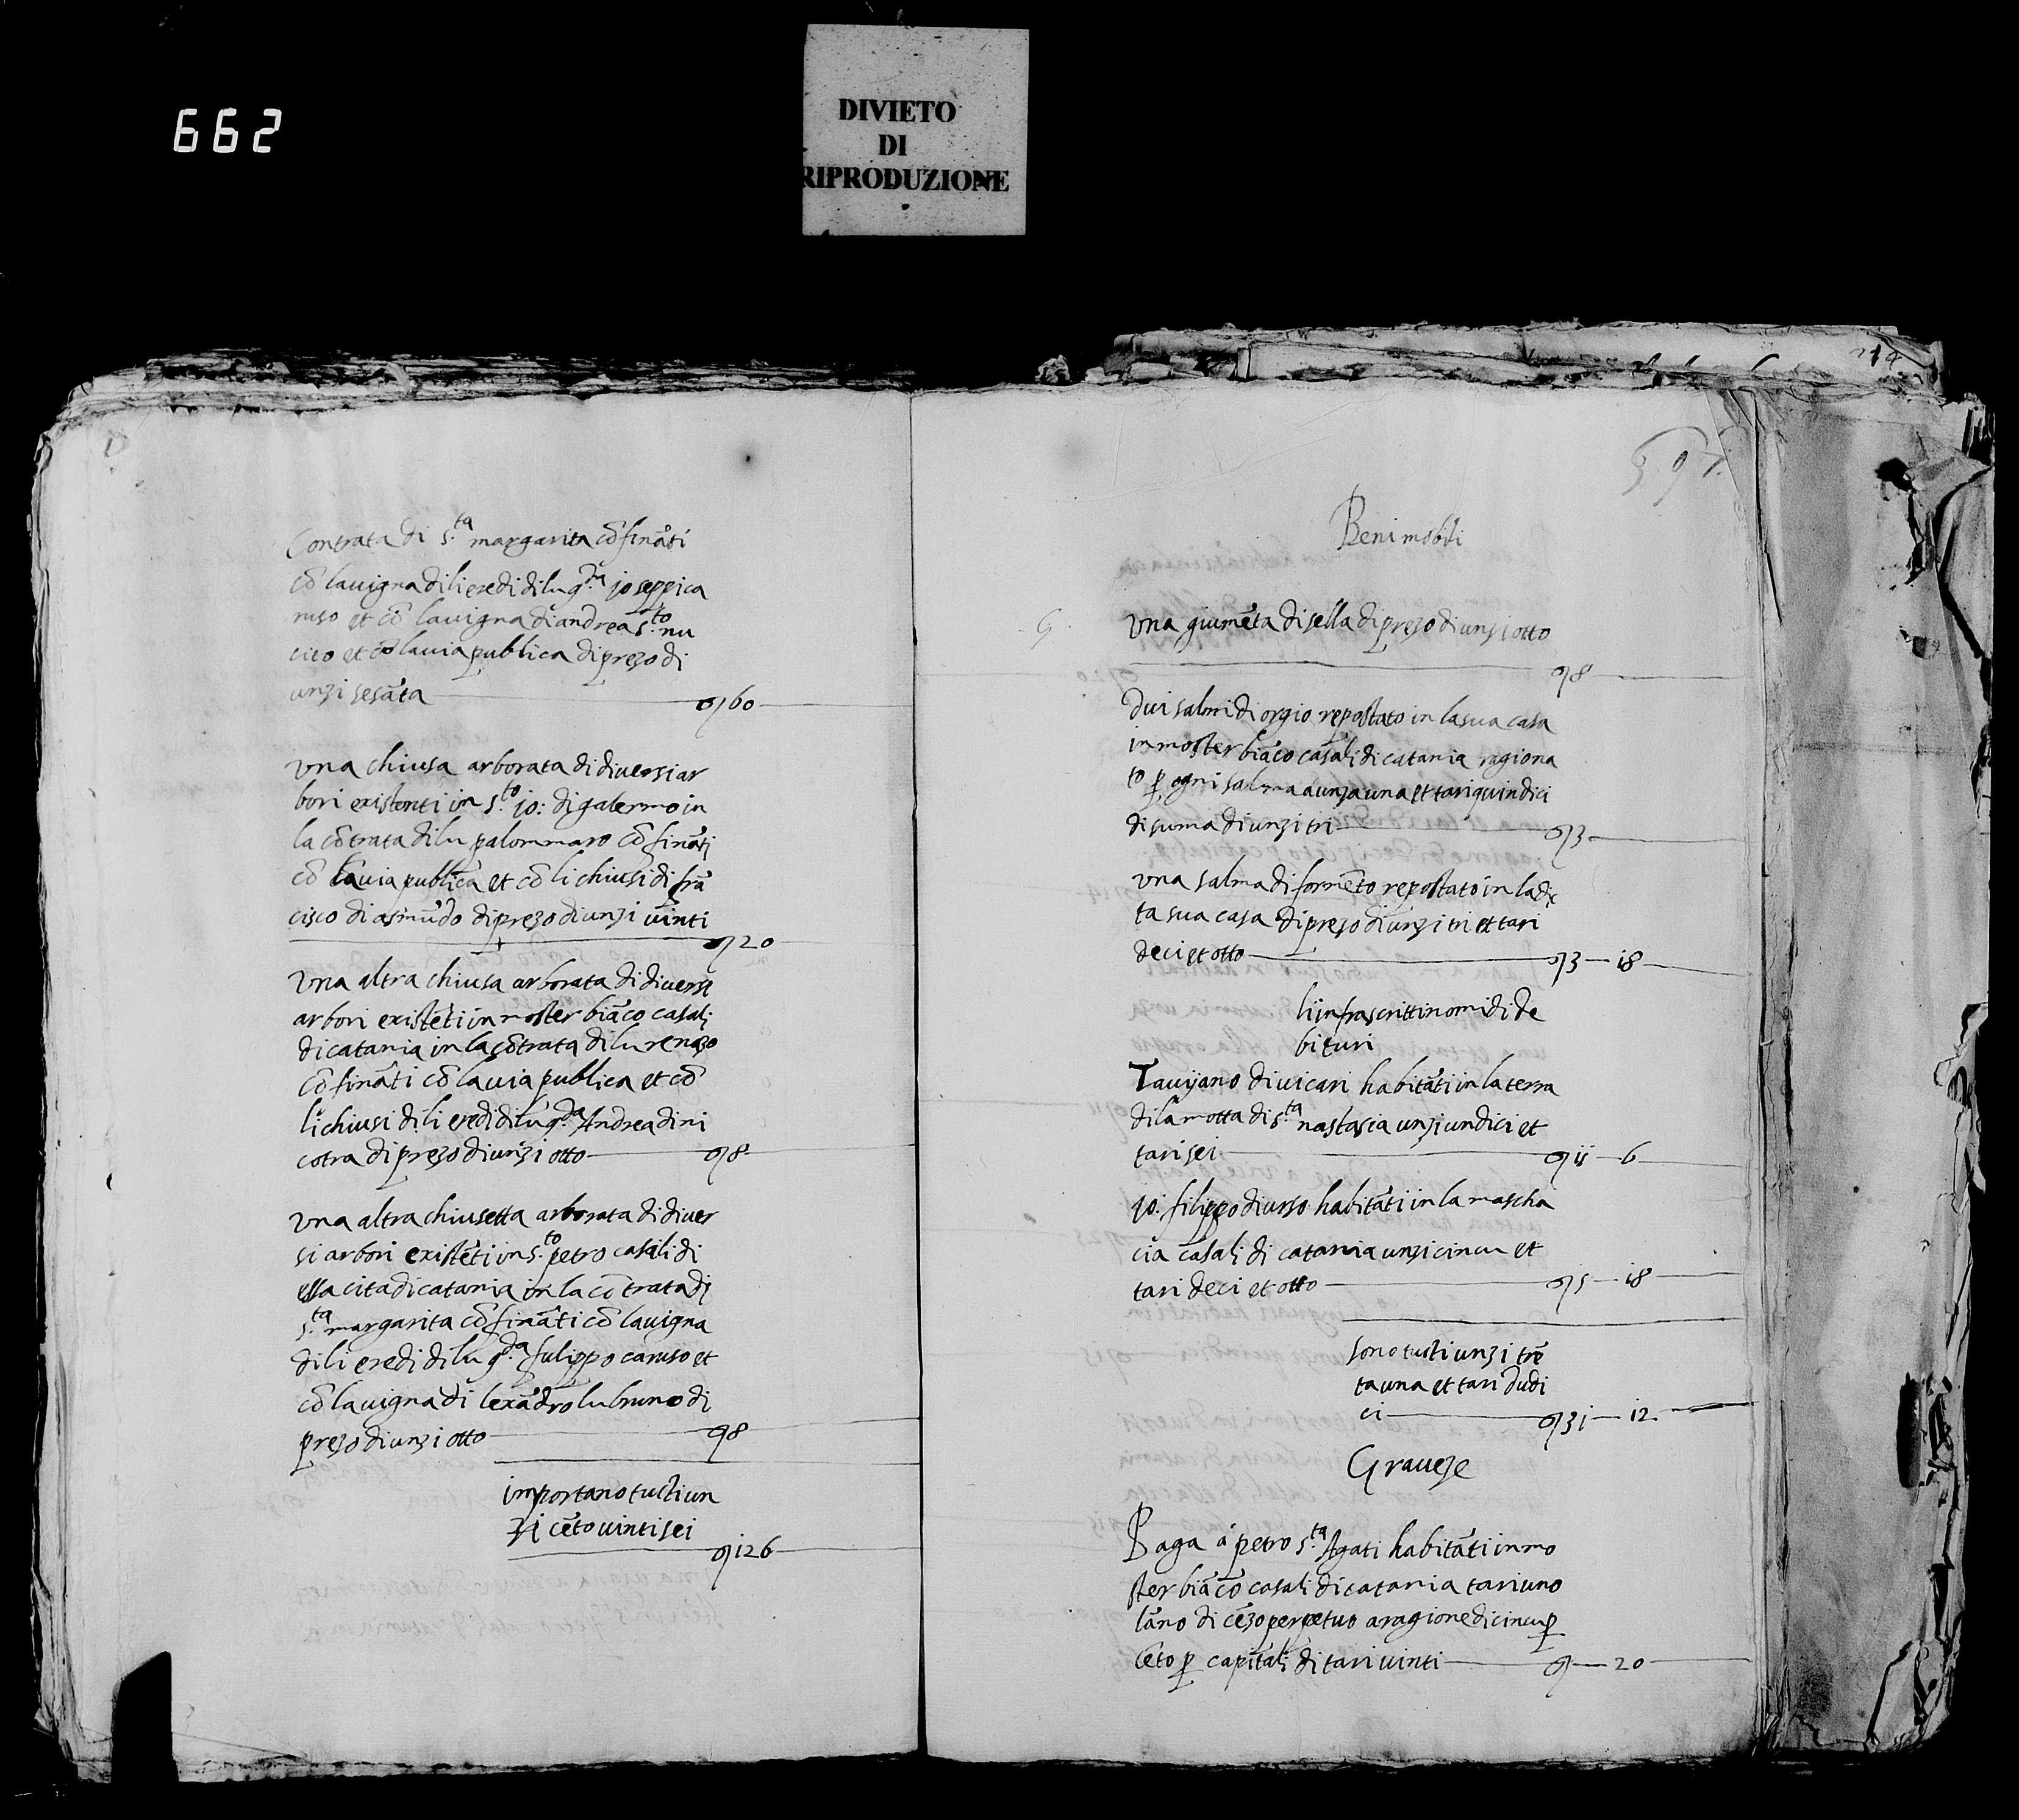 662
DIVIETO
DI
RIPRODUZIONE
Contrata di s.ta margarita cõfinãti
cõ la vigna di li eredi di lu q.da joseppi ca
ruso et cõ la vigna di andrea s.to nu
cito et cõ la via publica di prezo di
unzi sesãta 60
Vna chiusa arborata di diversi ar
bori existenti in s.to jo: di galermo in
la cõtrata di lu palommaro cõfinãti
cõ la via publica et cõ li chiusi di frã
cisco di asmũdo di prezo di unzi vinti
20
Vna altra chiusa arborata di diversi
arbori existẽti in moster biãco casali
di catania in la cõtrata di lu renazo
cõfinãti cõ la via publica et cõ
li chiusi di li eredi di lu q.da Andrea di ni
cotra di prezo di unzi otto 8
Vna altra chiusetta arborata di diver
si arbori existẽti in s.to petro casali di
essa cita di catania in la cõtrata di
s.ta margarita cõfinãti cõ la vigna
di li eredi di lu q.da fulippo caruso et
cõ la vigna di lexãdro lu bruno di
prezo di unzi otto 8
importano tutti un
zi cẽto vinti sei
126
214
Beni mobili
Vna giumẽta di sella di prezo di unzi otto
8
Dui salmi di orgio repostato in la sua casa
in moster biãco casali di catania ragiona
to p ogni salma a unza una et tari quindici
di suma di unzi tri 3
Vna salma di formẽto repostato in la dic
ta sua casa di prezo di unzi tri et tari
deci et otto 3 18
li infrascritti nomi di de
bituri
Tavijano di vicari habitãti in la terra
di la motta di s.ta nastasia unzi undici et
tari sei 11 6
jo: filippo di urso habitãti in la mascha
cia casali di catania unzi cincu et
tari deci et otto 5 18
sono tutti unzi trẽ
ta una et tari dudi
ci 31 12
Graveze
Paga a petro s.ta Agati habitãti in mo
ster biãco casali di catania tari uno
lãno di cẽzo perpetuo a ragione di cincu p
cẽto p capitali di tari vinti 20